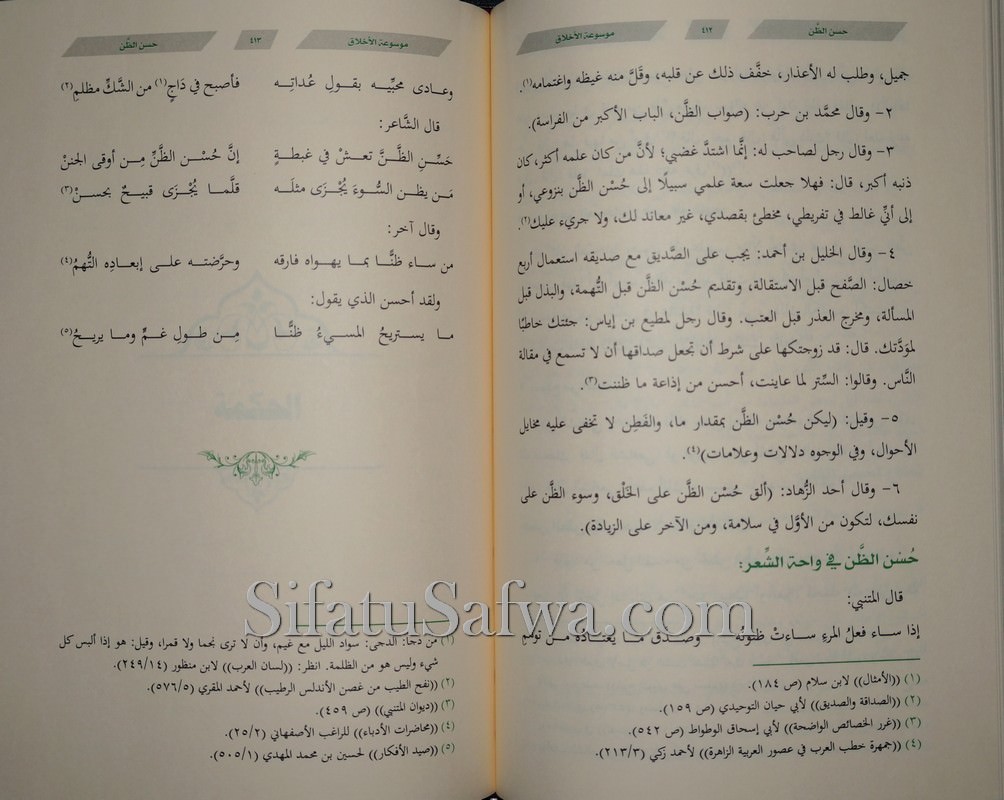 حسن الظَّن
٤١٢
موسوعة الأخلاق
جميل، وطلب له الأعذار، خفَّف ذلك عن قلبه، وقَلَّ منه غيظه واغتمامه(١).
٢- وقال محمَّد بن حرب: (صواب الظَّن، الباب الأكبر من الفراسة).
٣- وقال رجل لصاحب له: إنَّما اشتدَّ غضبي؛ لأنَّ من كان علمه أكثر، كان
ذنبه أكبر، قال: فهلا جعلت سعة علمي سبيلًا إلى حُسْن الظَّن بنزوعي، أو
إلى أنِّي غالط في تفريطي، مخطئ بقصدي، غير معاند لك، ولا جريء عليك(٢).
٤- وقال الخليل بن أحمد: يجب على الصَّديق مع صديقه استعمال أربع
خصال: الصَّفح قبل الاستقالة، وتقديم حُسْن الظَّن قبل التُّهمة، والبذل قبل
المسألة، ومخرج العذر قبل العتب. وقال رجل لمطيع بن إياس: جئتك خاطبًا
لمودَّتك. قال: قد زوجتكها على شرط أن تجعل صداقها أن لا تسمع في مقالة
النَّاس. وقالوا: السِّتر لما عاينت، أحسن من إذاعة ما ظننت(٣).
٥- وقيل: (ليكن حُسْن الظَّن بمقدار ما، والفَطِن لا تخفى عليه مخايل
الأحوال، وفي الوجوه دلالات وعلامات)(٤).
٦- وقال أحد الزُّهاد: (ألق حُسْن الظَّن على الخَلْق، وسوء الظَّن على
نفسك، لتكون من الأوَّل في سلامة، ومن الآخر على الزيادة).
حُسْن الظَّن في واحة الشِّعر:
قال المتنبي:
إذا ساء فعلُ المرءِ ساءتْ ظنونُه وصدَّق ما يعتادُه من توهُّمِ
(١) ((الأمثال)) لابن سلام (ص ١٨٤).
(٢) ((الصداقة والصديق)) لأبي حيان التوحيدي (ص ١٥٩).
(٣) ((غرر الخصائص الواضحة)) لأبي إسحاق الوطواط (ص ٥٤٢).
(٤) ((جمهرة خطب العرب في عصور العربية الزاهرة)) لأحمد زكي (٢١٣/٣).
موسوعة الأخلاق
٤١٣
حسن الظَّن
وعادى محبِّيه بقولِ عُداتِه فأصبح في دَاجٍ(١) من الشَّكِّ مظلمِ(٢)
قال الشَّاعر:
حَسِّنِ الظَّنَّ تعشْ في غبطةٍ إنَّ حُسْن الظَّنِّ مِن أوقى الجننْ
مَن يظن السُّوءَ يُجْزَى مثلَه قلَّما يُجْزَى قبيحٌ بحسنْ(٣)
وقال آخر:
من ساء ظنًّا بما يهواه فارقه وحرَّضته على إبعادِه التُّهمُ(٤)
ولقد أحسن الذي يقول:
ما يستريحُ المسيءُ ظنًّا مِن طولِ غمٍّ وما يريحُ(٥)
(١) من دجا: الدجى: سواد الليل مع غيم، وأن لا ترى نجما ولا قمرا، وقيل: هو إذا ألبس كل
شيء وليس هو من الظلمة. انظر: ((لسان العرب)) لابن منظور (٢٤٩/١٤).
(٢) ((نفح الطيب من غصن الأندلس الرطيب)) لأحمد المقري (٥٧٦/٥).
(٣) ((ديوان المتنبي)) (ص ٤٥٩).
(٤) ((محاضرات الأدباء)) للراغب الأصفهاني (٢٥/٢).
(٥) ((صيد الأفكار)) لحسين بن محمد المهدي (٥٠٥/١).
SifatuSafwa.com